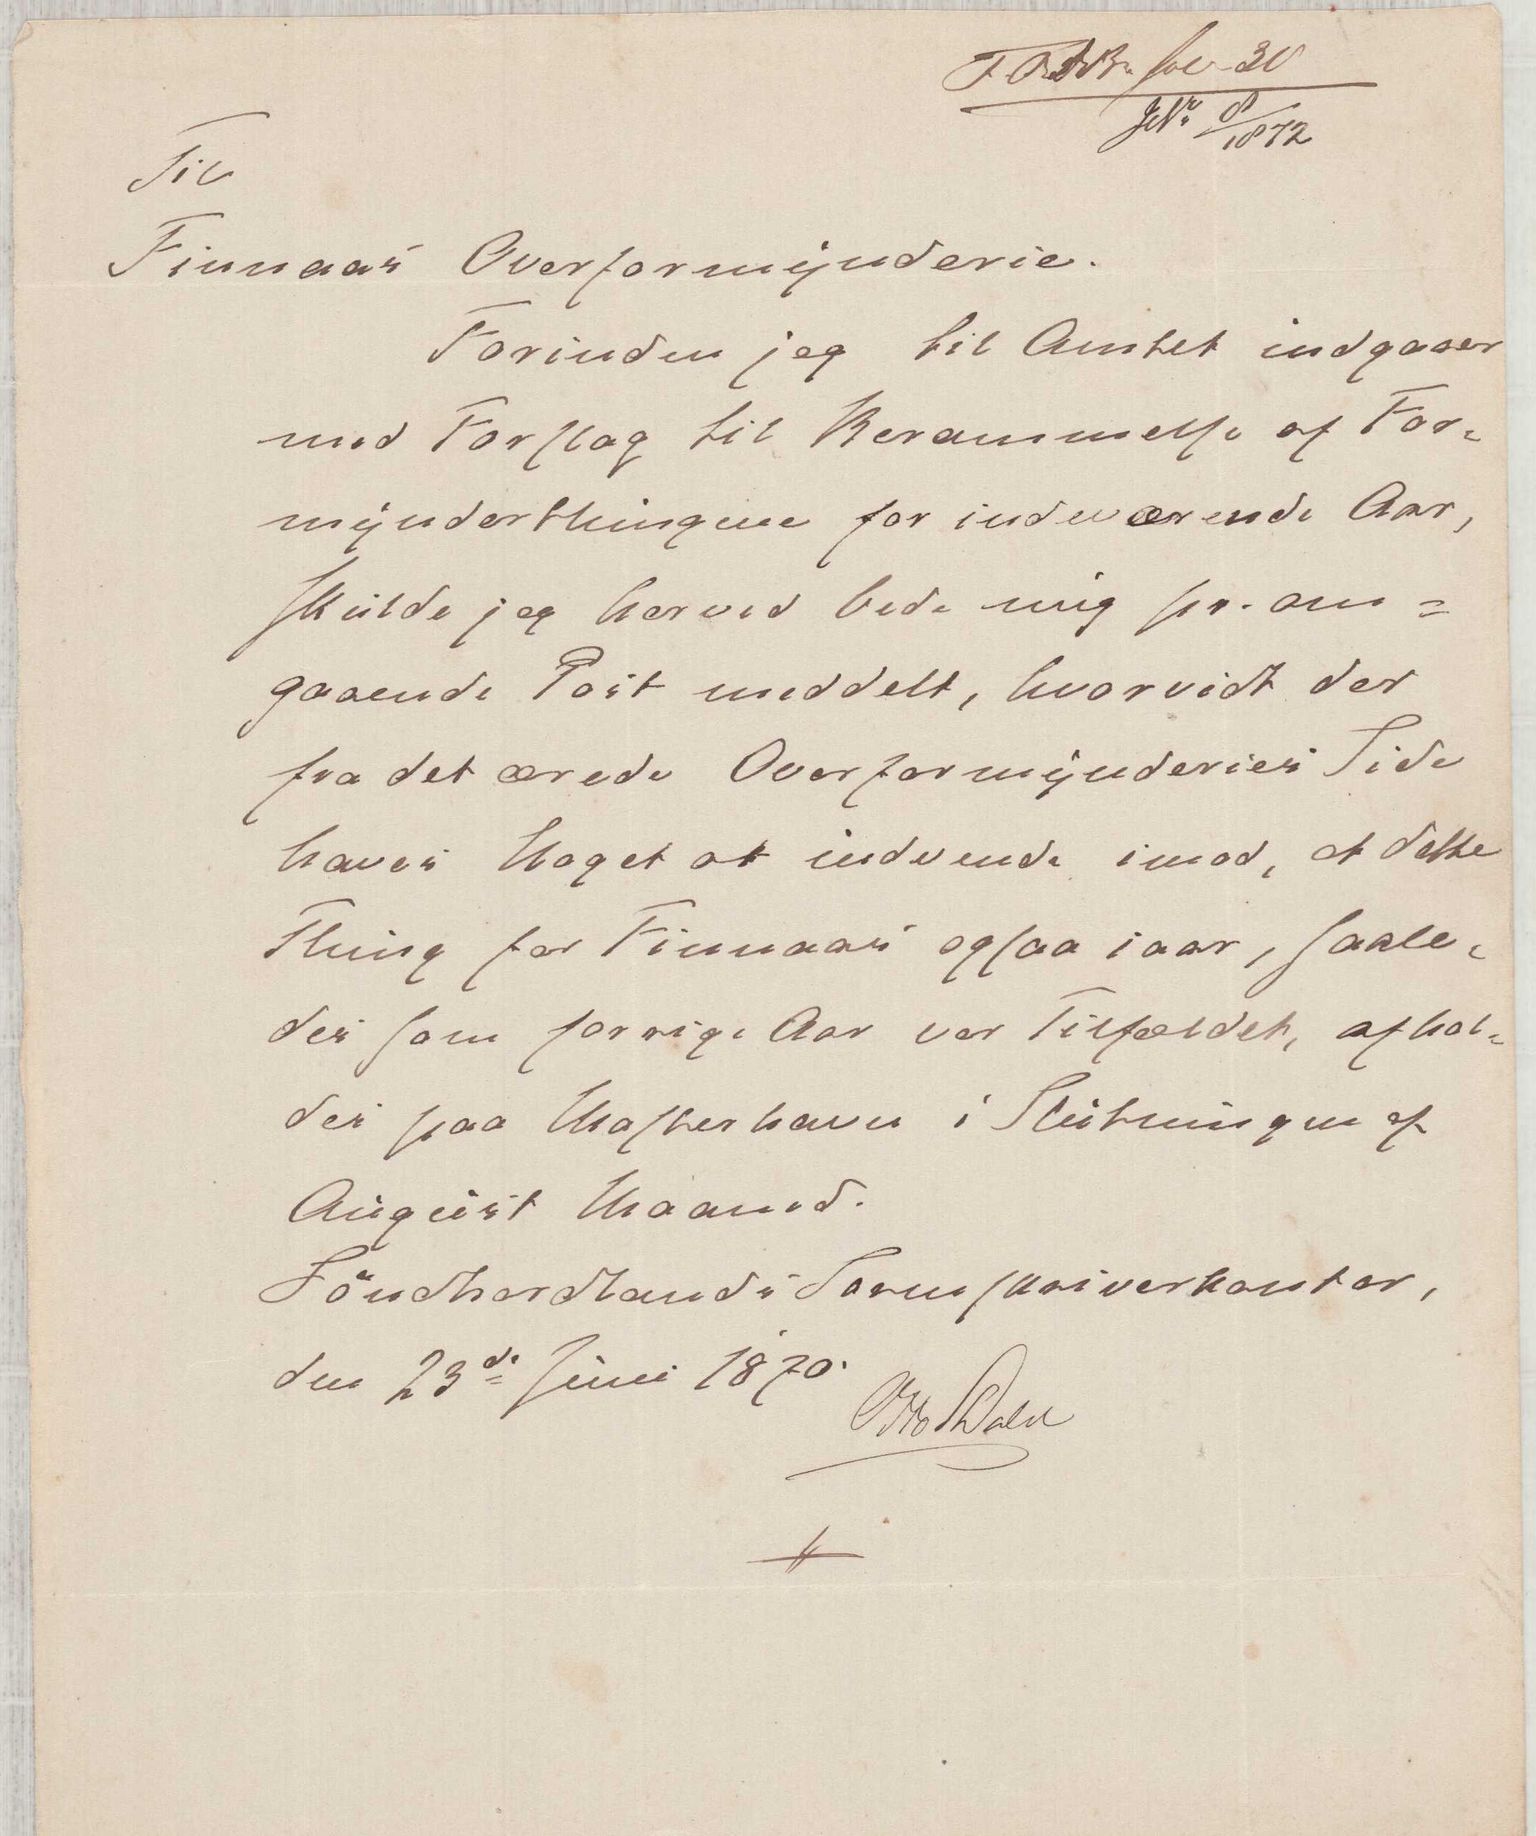 fol 30
JNr. 8/1872
Til
Finnaas Overformynderie.
Forinden jeg til Amtet indgaaer
med Forslag til Berammelse af For-
mynderthingene for indeværende Aar,
skulde jeg herved bede mig pr. om-
gaaende Post meddelt, hvorvidt der
fra det ærede Overformynderies Side
haves Noget at indvende imod, at dette
Thing for Finnaas ogsaa iaar, saale-
des som forrige Aar var Tilfældet, afhol-
des paa Mosterhavn i Slutningen af
August Maaned.
Söndhordlands Sorenskriverkontor,
den 23de Juni 1870.